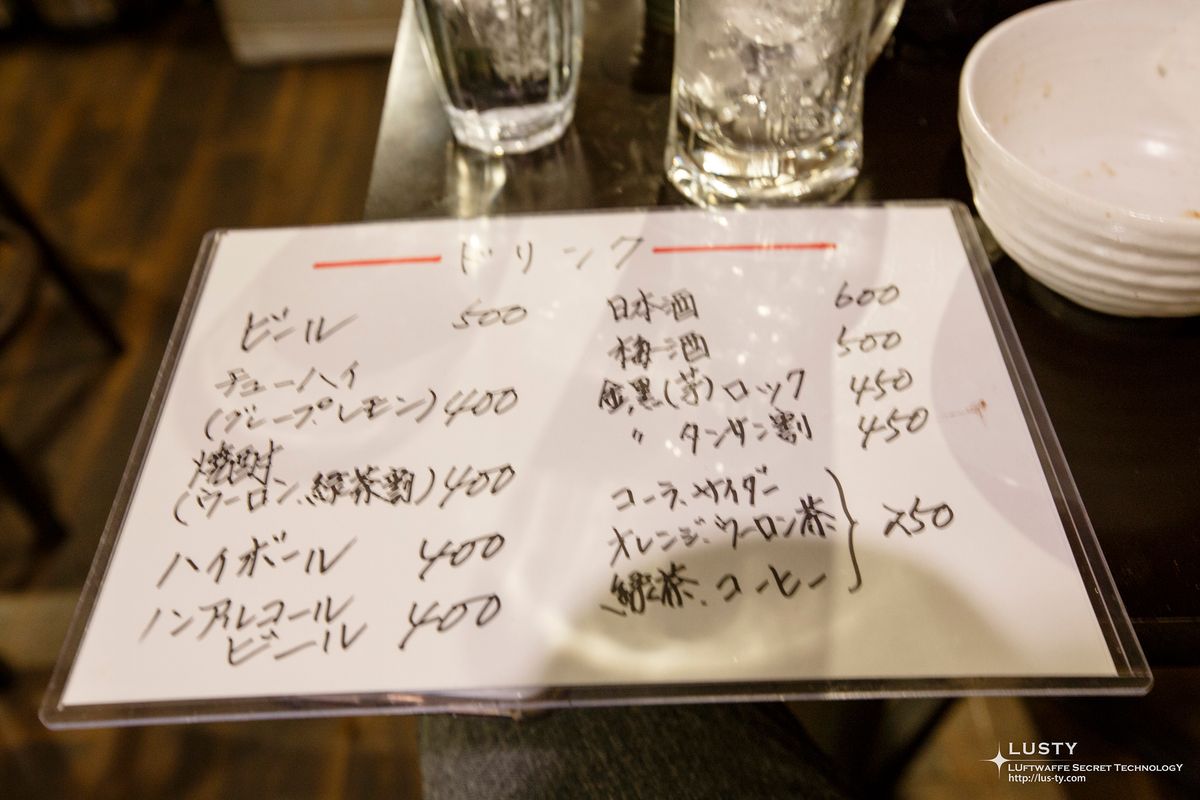 ドリンク
ビール 500
チューハイ
(グレープ、レモン) 400
焼酎
(ウーロン、緑茶割) 400
ハイボール 400
ノンアルコール
ビール 400
日本酒 600
梅酒 500
金、黒(芋)ロック 450
〃 タンサン割 450
コーラ、サイダー
オレンジ、ウーロン茶 250
緑茶、コーヒー
LUSTY
LUFTWAFFE SECRET TECHNOLOGY
http://lus-ty.com